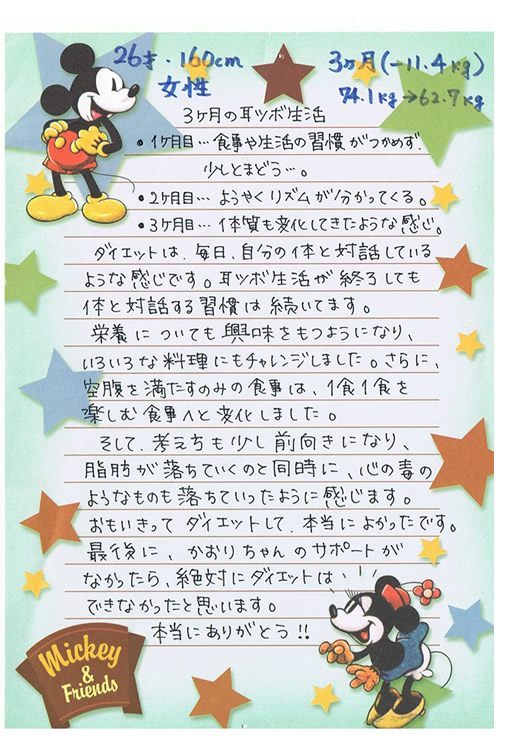 26才・160cm 3ヶ月(-11.4kg)
女性 74.1kg→62.7kg
3ヶ月の耳ツボ生活
●1ヶ月目…食事や生活の習慣がつかめず.
少しとまどう…。
●2ヶ月目…ようやくリズムが分かってくる。
●3ヶ月目…体質も変化してきたような感じ。
ダイエットは、毎日、自分の体と対話している
ような感じです。耳ツボ生活が終了しても
体と対話する習慣は続いてます。
栄養についても興味をもつようになり、
いろいろな料理にもチャレンジしました。さらに、
空腹を満たすのみの食事は、1食1食を
楽しむ食事へと変化しました。
そして、考えちも少し前向きになり、
脂肪が落ちていくのと同時に、心の毒の
ようなものも落ちていったように感じます。
おもいきってダイエットして、本当によかったです。
最後に、かおりちゃんのサポートが
なかったら、絶対にダイエットは
できなかったと思います。
本当にありがとう!!
Mickey
&
Friends